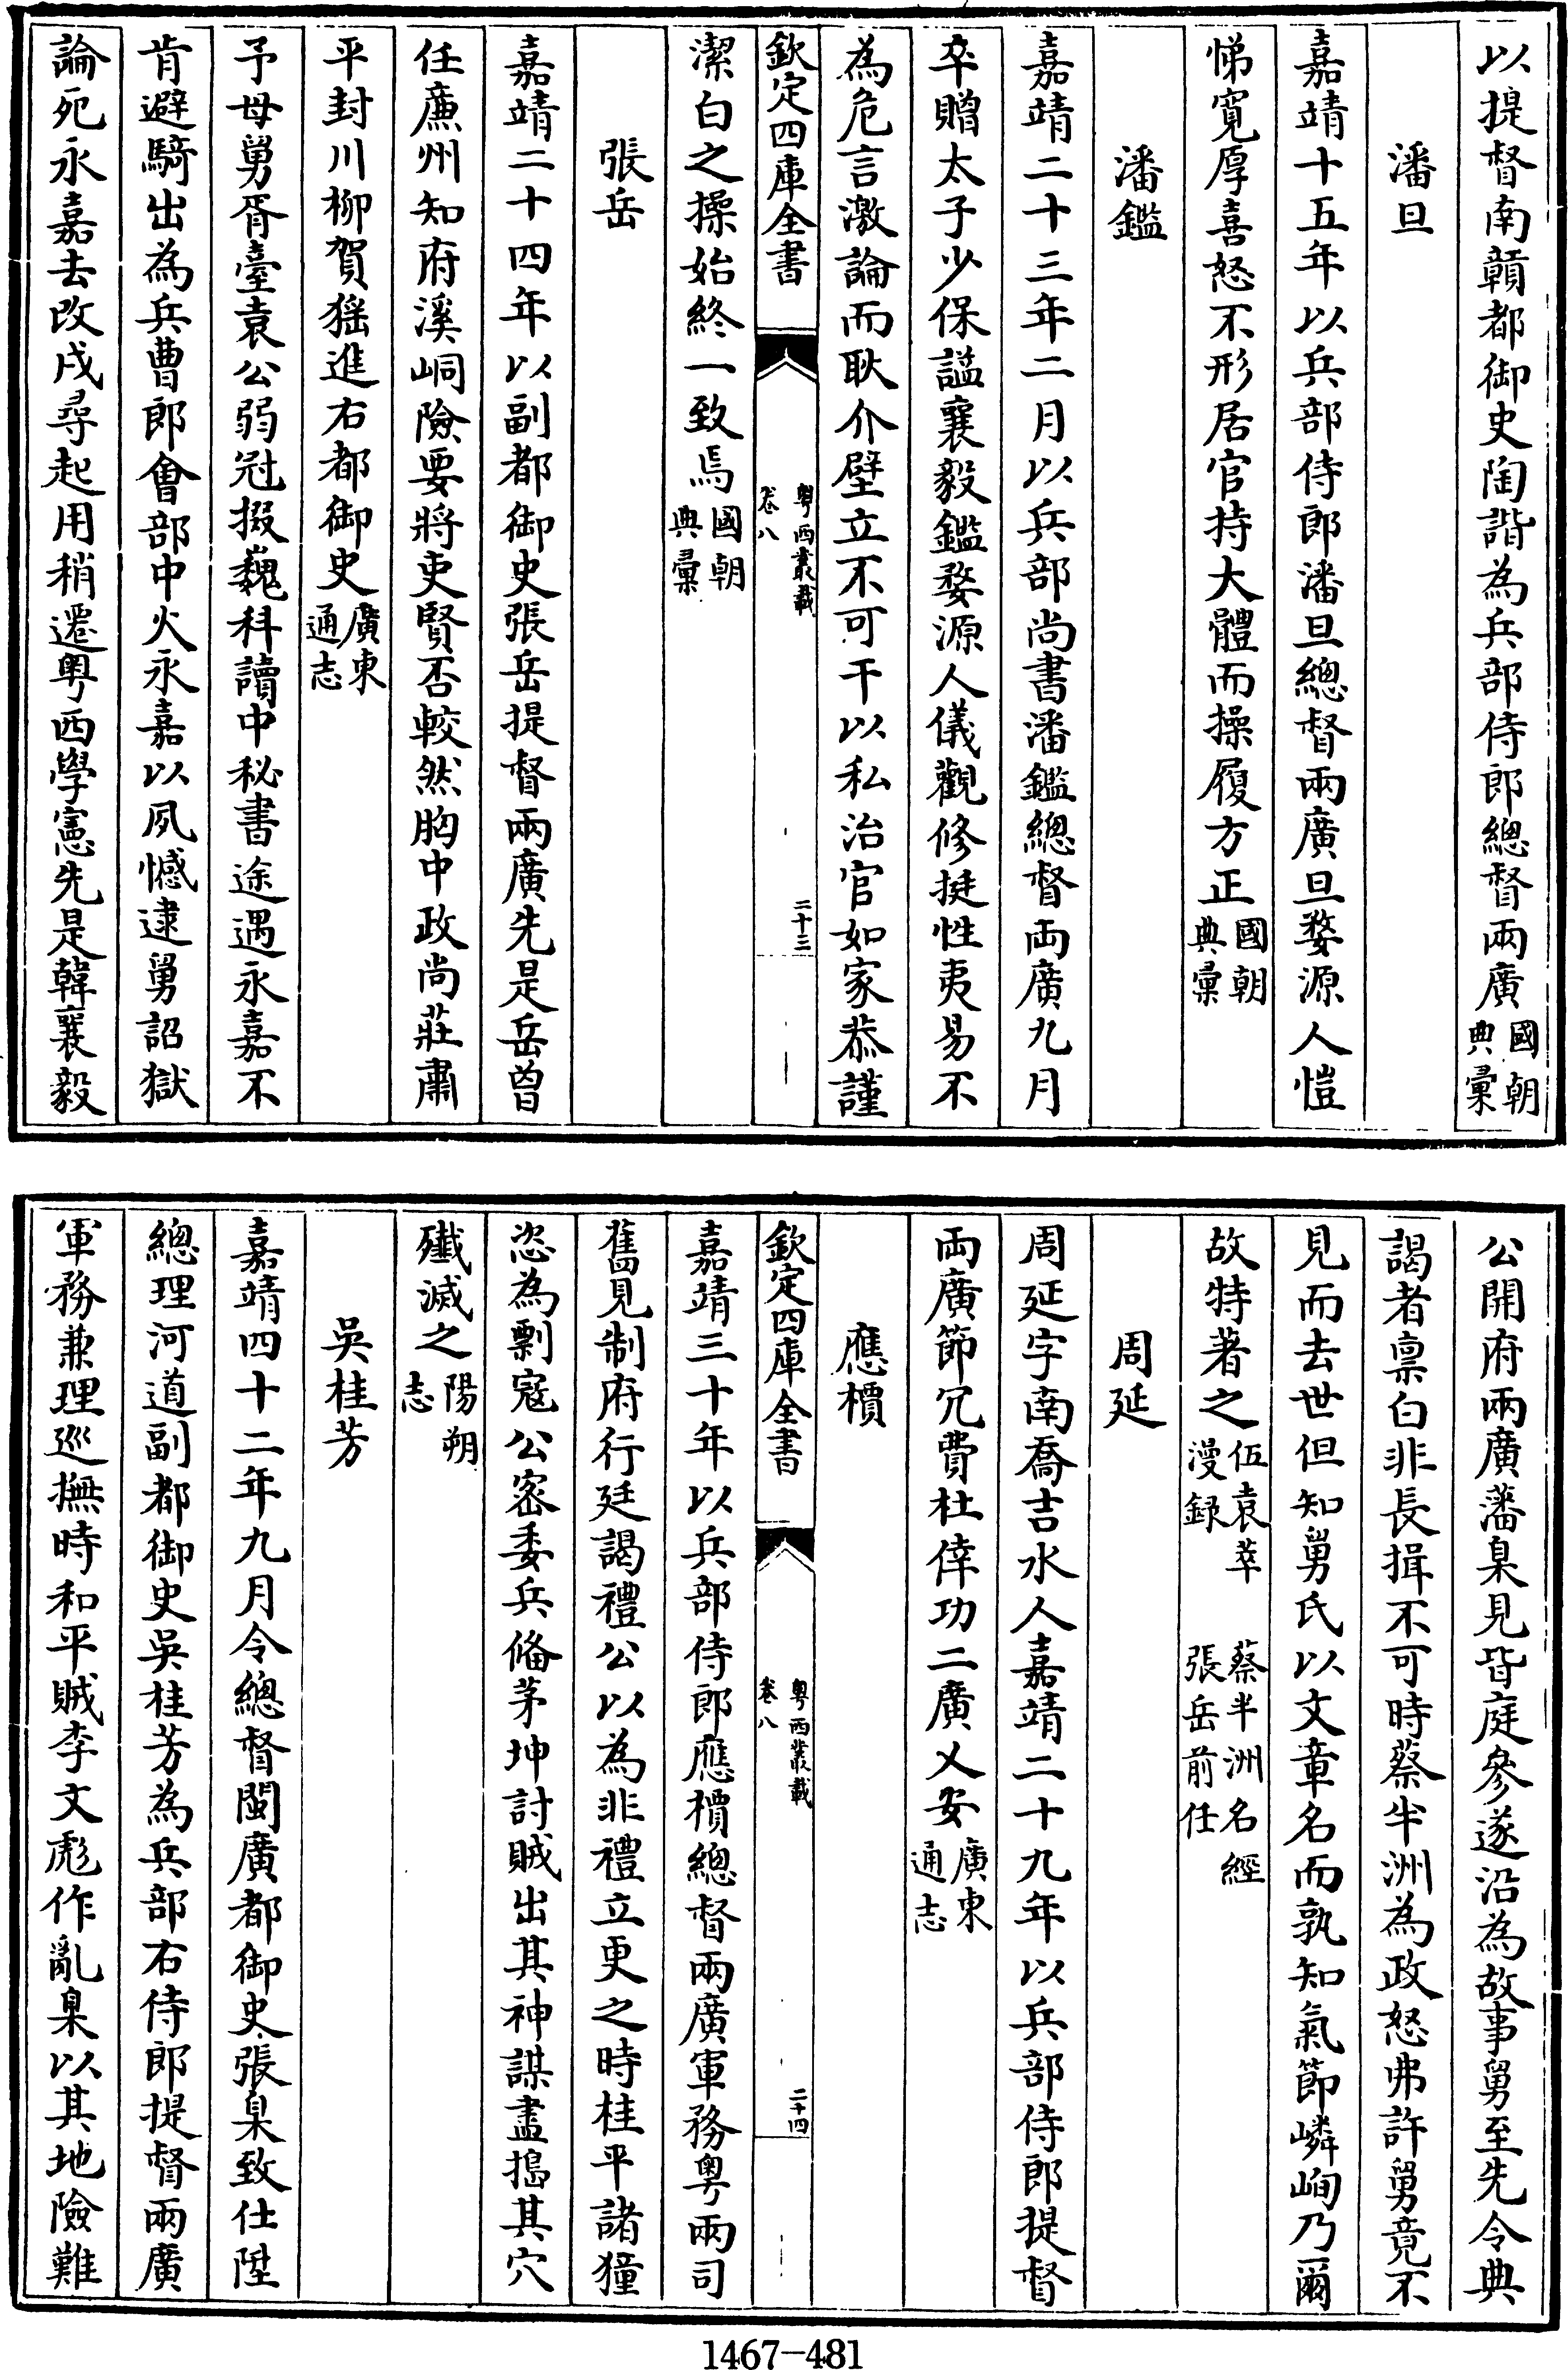 以提督南贑都御史陶諧為兵部侍郎總督兩廣國朝典彙
潘旦
嘉靖十五年以兵部侍郎潘旦總督兩廣旦婺源人愷
悌寛厚喜怒不形居官持大體而操履方正國朝典彙
潘鑑
嘉靖二十三年二月以兵部尚書潘鑑總督両廣九月
卒贈太子少保謚襄毅鑑婺源人儀觀修挺性夷易不
為危言激論而耿介壁立不可干以私治官如家恭謹
欽定四庫全書
粤西叢載
卷八
二十三
潔白之操始終一致焉國朝典彙
張岳
嘉靖二十四年以副都御史張岳提督兩廣先是岳曽
任亷州知府溪峒險要將吏賢否較然胸中政尚莊肅
平封川柳賀猺進右都御史廣東通志
予母舅胥臺袁公弱冠掇巍科讀中秘書途遇永嘉不
肯避騎出為兵曹郎會部中火永嘉以夙憾逮舅詔獄
論死永嘉去改戍尋起用稍遷粤西學憲先是韓襄毅
公開府兩廣藩臬見皆庭參遂沿為故事舅至先令典
謁者禀白非長揖不可時蔡半洲為政怒弗許舅竟不
見而去世但知舅氏以文章名而孰知氣節嶙峋乃爾
故特著之伍袁萃漫録 蔡半洲名經張岳前任
周延
周延字南喬吉水人嘉靖二十九年以兵部侍郎提督
両廣節冗費杜倖功二廣乂安廣東通志
應檟
欽定四庫全書
粤西叢載
卷八
二十四
嘉靖三十年以兵部侍郎應檟總督兩廣軍務粤兩司
舊見制府行廷謁禮公以為非禮立更之時桂平諸獞
恣為剽宼公密委兵偹茅坤討賊出其神謀盡搗其穴
殱滅之陽朔志
吳桂芳
嘉靖四十二年九月令總督閩廣都御史張臬致仕陞
總理河道副都御史吳桂芳為兵部右侍郎提督兩廣
軍務兼理巡撫時和平賊李文彪作亂臬以其地險難
1467-481